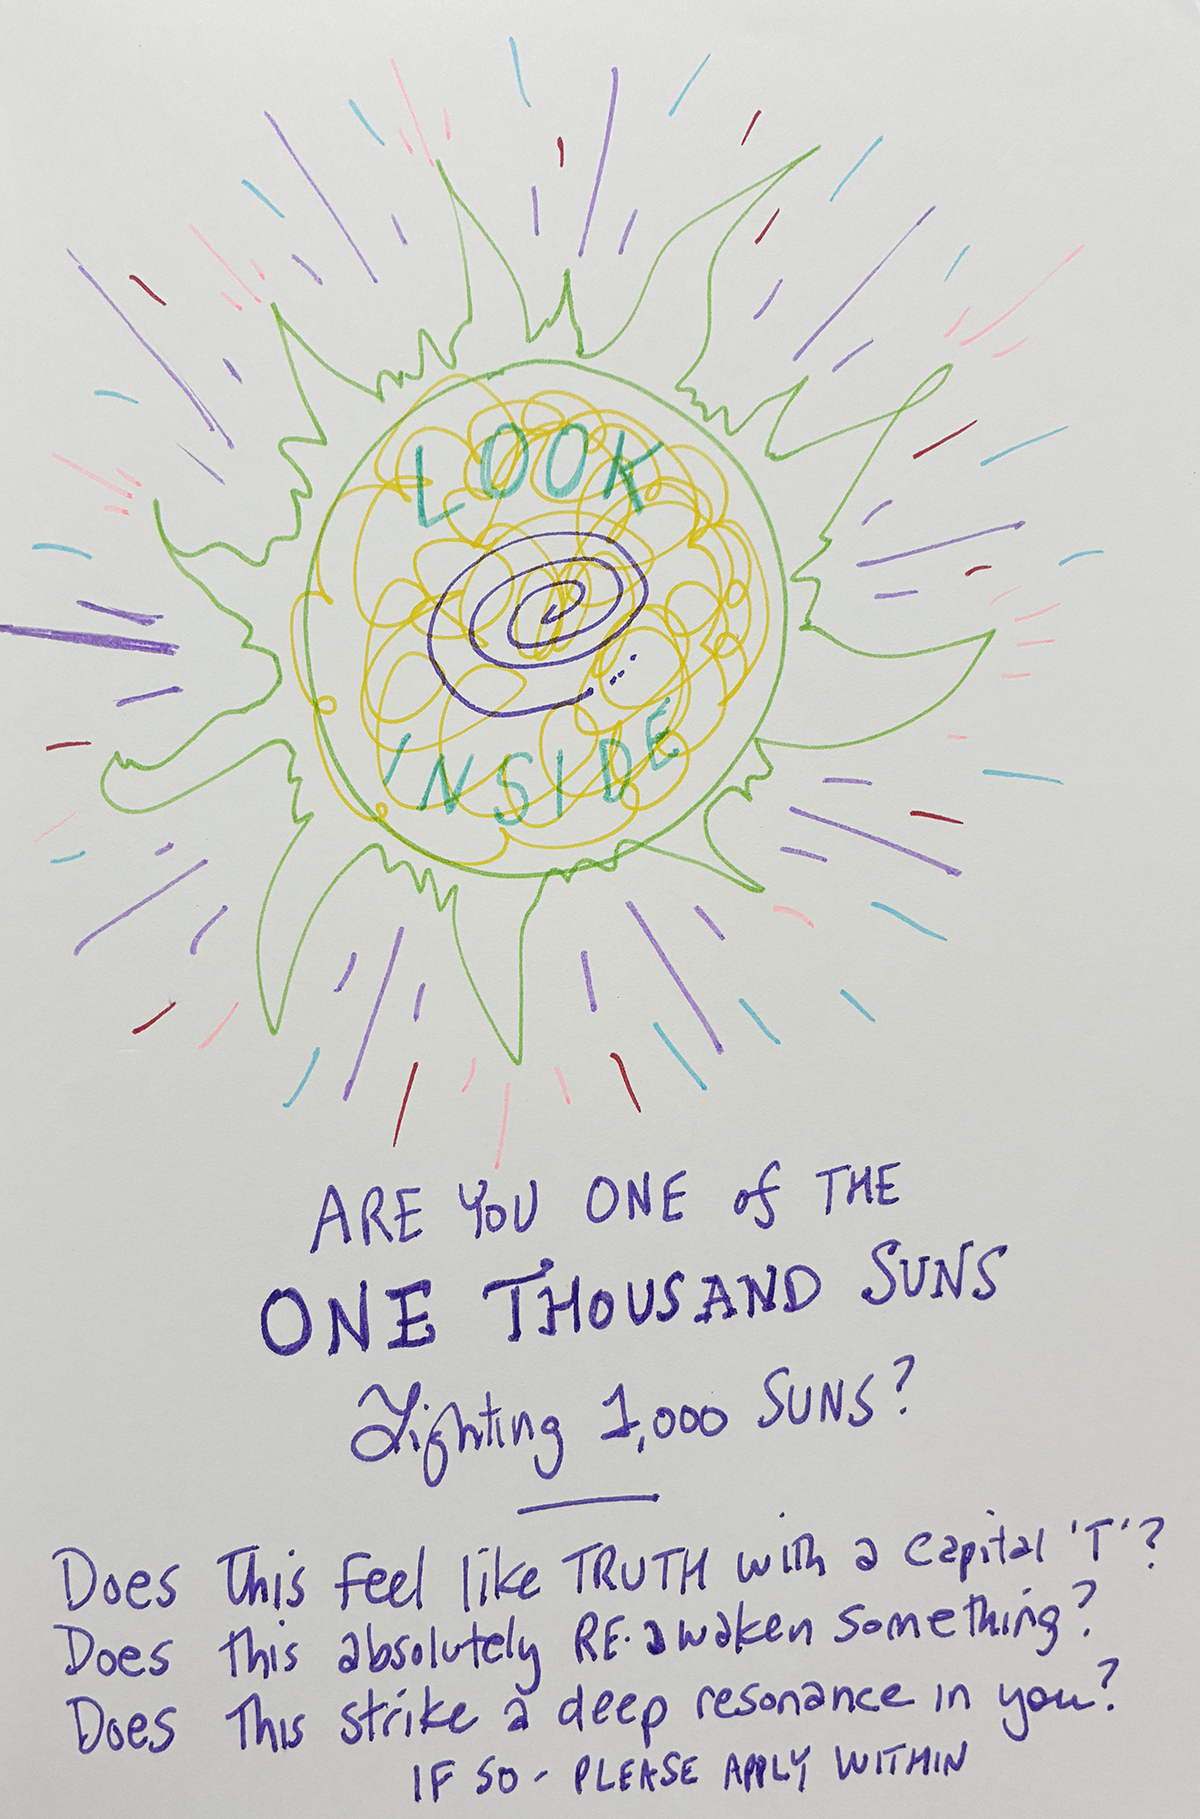 LOOK
INSIDE
ARE YOU ONE of THE
ONE THOUSAND SUNS
Lighting 1,000 SUNS?
Does this feel like TRUTH with a capital 'T'?
Does this absolutely RE·awaken something?
Does this strike a deep resonance in you?
IF SO - PLEASE APPLY WITHIN